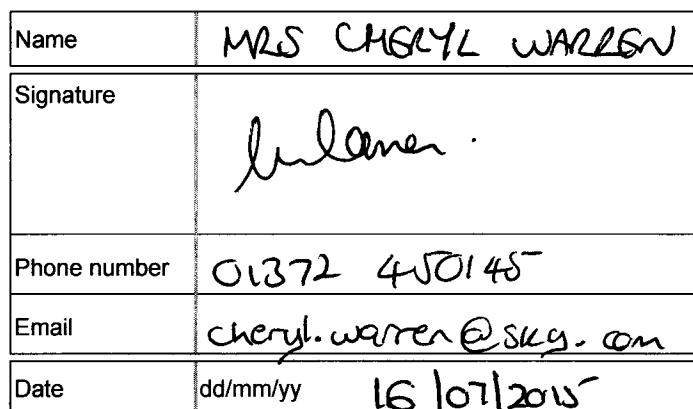 Name MRS CHERYL WARREN
Signature
Phone number 01372 450145
Email cheryl.warren@sky.com
Date dd/mm/yy 16/07/2015